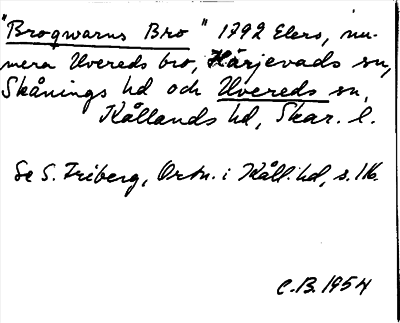 "Broqwarns Bro" 1792 Elers, nu-
mera Uvereds bro, Härjevads sn,
Skånings hd och Uvereds sn,
Kållands hd, Skar. l.
Se S. Friberg, Ortn. i Kåll. hd, s. 116.
C.B. 1954